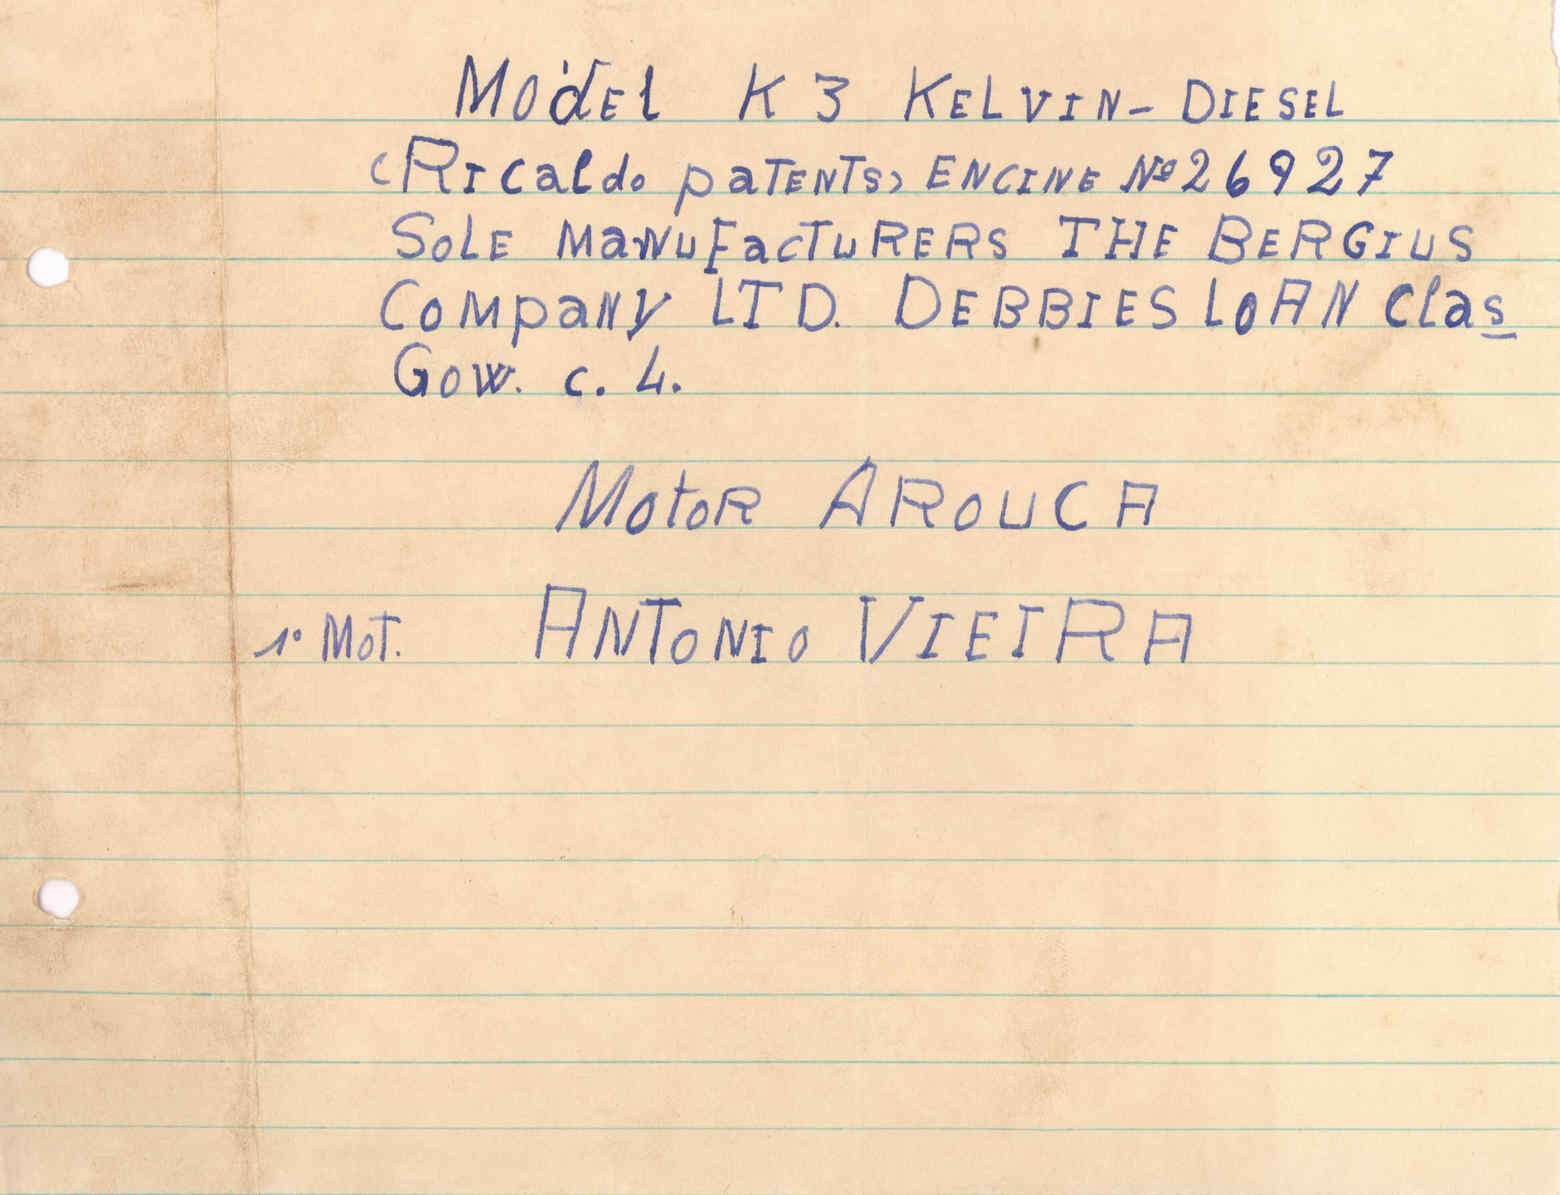 Model K 3 KELVIN - DIESEL
(Ricaldo patents) ENCINE Nº 26927
Sole manufacturers THE BERGIUS
Company LTD. DEBBIES LOAN Clas
Gow. c. 4.
Motor AROUCA
1º Mot. ANTONIO VIEIRA